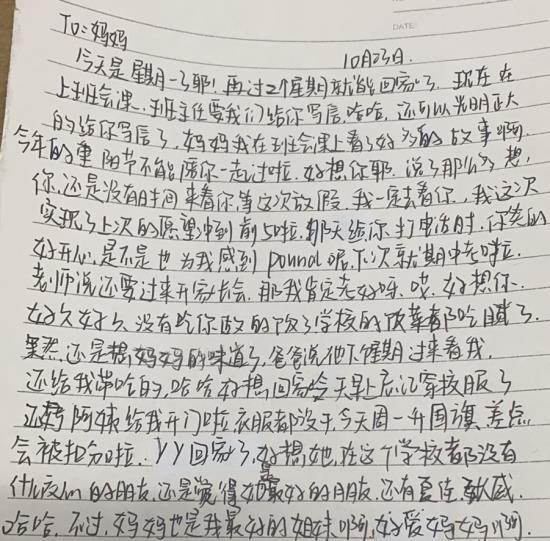 DATE:
TO:妈妈
10月23日.
今天是星期一了耶!再过2个星期就能回家了.现在在
上班会课.班主任要我们给你写信.哈哈,还可以光明正大
的给你写信了,妈妈我在班会课上看了好多的故事啊
今年的重阳节不能陪你一起过啦.好想你耶.说了那么多想
你,还是没有时间来看你,等这次放假.我一定去看你,我这次
实现了上次的愿望冲到前50啦.那天给你打电话时,你笑的
好开心,是不是也为我感到pound呢.下次就期中考啦.
老师说还要过来开家长会,那我肯定考好呀.哎.好想你.
好久好久没有吃你做的饭了学校的饭菜都吃腻了.
果然还是想妈妈的味道了,爸爸说他下星期过来看我.
还给我带吃的,哈哈好想回家今天早上忘记穿校服了
还好阿姨给我开门啦衣服都没干,今天周一升国旗差点
会被扣分啦.YY回家了,好想她,在这个学校都没有
什么 的朋友.还是觉得她是最好的朋友.还有
哈哈,不过,妈妈也是我最好的姐妹啊,好爱妈妈啊.